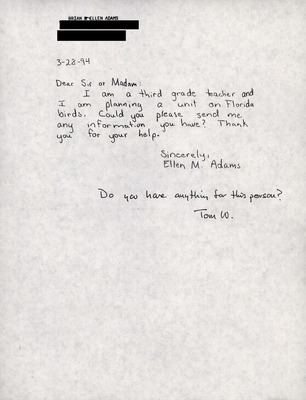 BRIAN M-ELLEN ADAMS
3-28-94
Dear Sir or Madam:
I am a third grade teacher and
I am planning a unit on Florida
birds. Could you please send me
any information you have? Thank
you for your help.
Sincerely,
Ellen M. Adams
Do you have anything for this person?
Tom W.